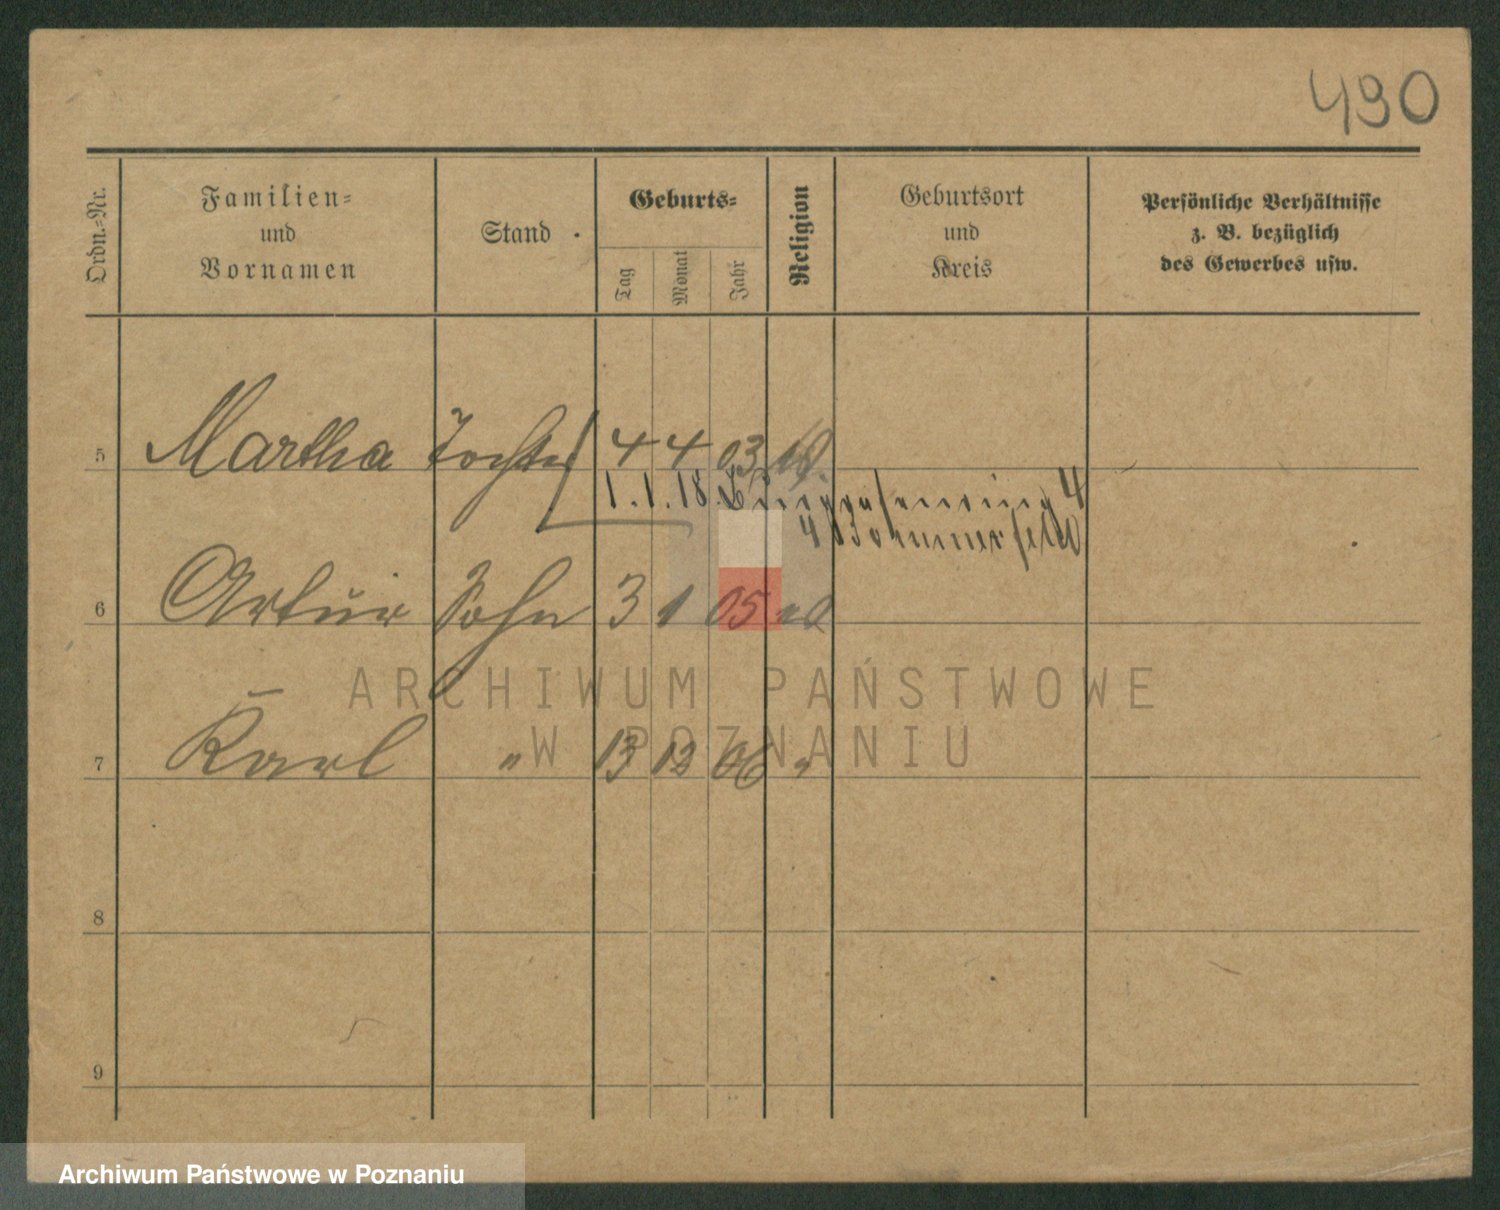 490
Ordn.-Nr.
Familien-
und
Vornamen
Stand
Geburts-
Tag
Monat
Jahr
Religion
Geburtsort
und
Kreis
Persönliche Verhältnisse
z. B. bezüglich
des Gewerbes usw.
5 Martha Tochter 4 4 03
1.1.18. Burggrafenring 4
6 Artur Sohn 3 1 05
7 Karl " 13 12 06 "
8
9
ARCHIWUM PAŃSTWOWE
W POZNANIU
Archiwum Państwowe w Poznaniu